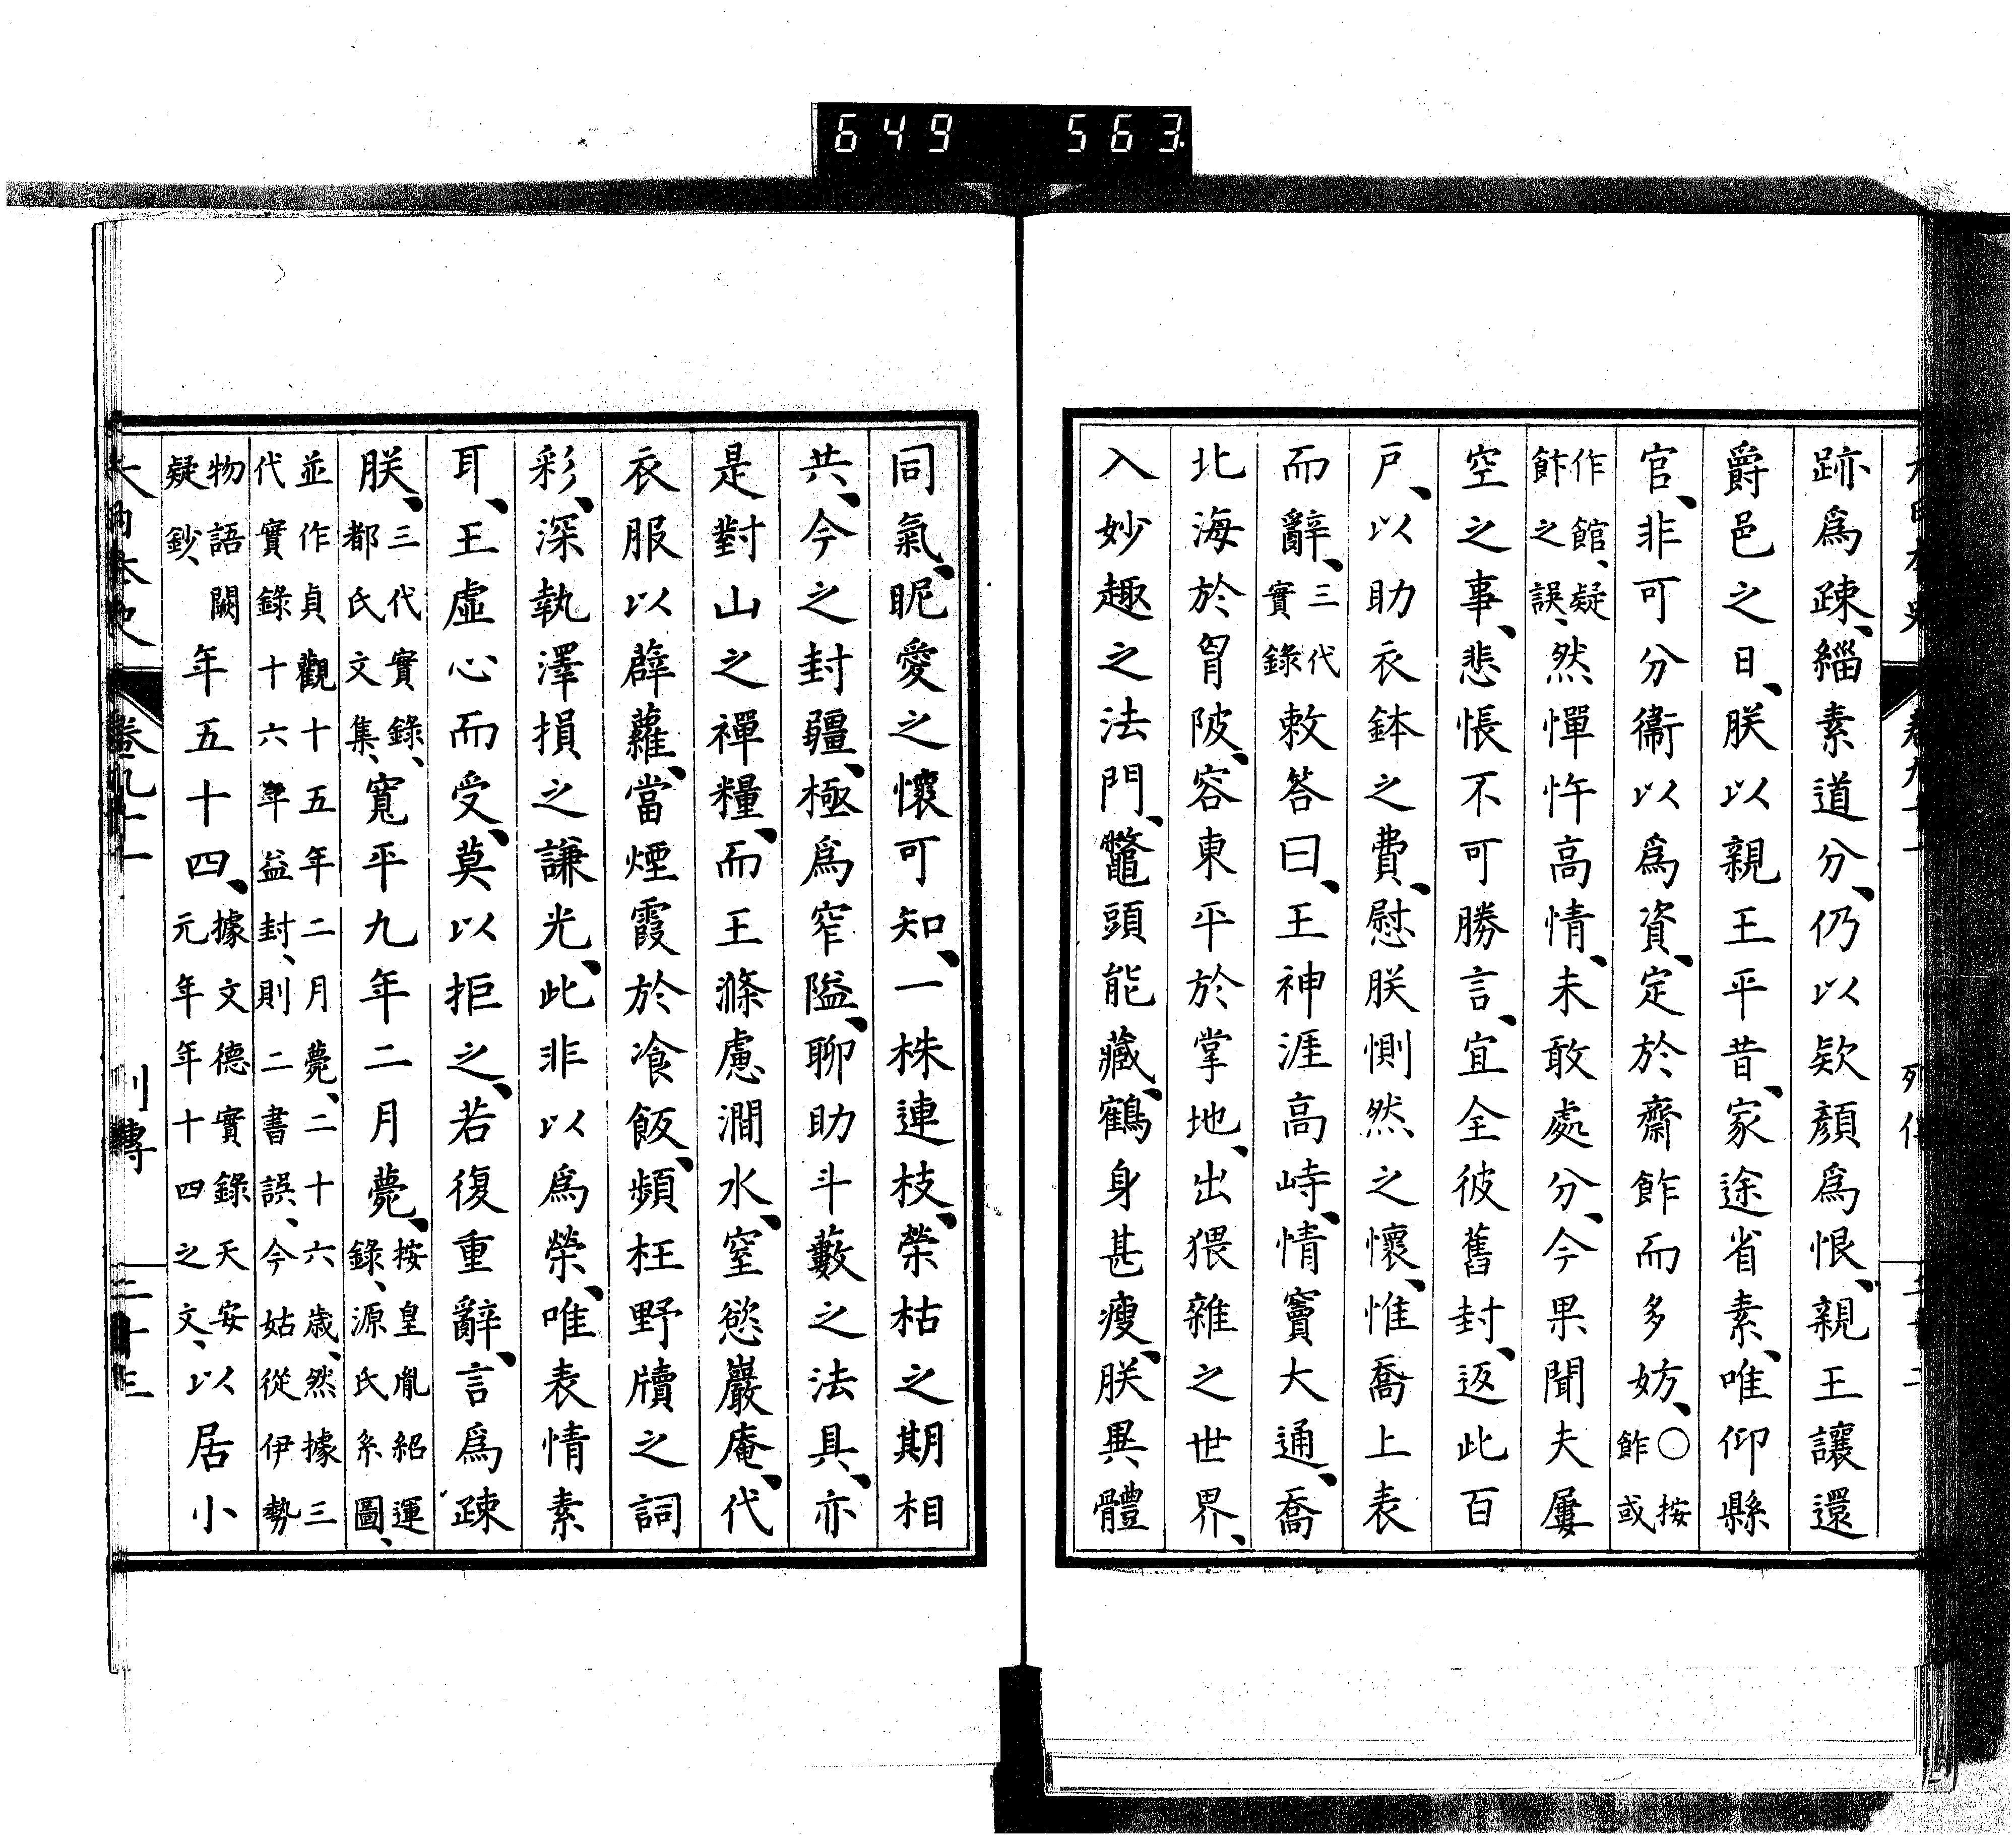 649 563
跡爲疎、緇素道分、仍以欵顏爲恨、親王讓還
爵邑之日、朕以親王平昔、家途省素、唯仰縣
官、非可分衞以爲資、定於齋飵而多妨、〇按飵或
作館、疑飵之誤、然憚忤高情、未敢處分、今果聞夫屢
空之事、悲悵不可勝言、宜全彼舊封、返此百
戸、以助衣鉢之費、慰朕惻然之懷、惟喬上表
而辭、三代實錄敕答曰、王神涯高峙、情竇大通、喬
北海於胷陂、容東平於掌地、出猥雜之世界、
入妙趣之法門、鼈頭能藏、鶴身甚瘦、朕異體
同氣、昵愛之懷可知、一株連枝、榮枯之期相
共、今之封疆、極爲窄隘、聊助斗藪之法具、亦
是對山之禪糧、而王滌慮澗水、窒慾巖庵、代
衣服以薜蘿、當煙霞於飡飯、頻枉野牘之詞
彩、深執澤損之謙光、此非以爲榮、唯表情素
耳、王虛心而受、莫以拒之、若復重辭、言爲疎
朕、三代實錄、都氏文集、寬平九年二月薨、按皇胤紹運錄、源氏系圖、
並作貞觀十五年二月薨、二十六歲、然據三代實錄十六年益封、則二書誤、今姑從伊勢
物語闕疑鈔、年五十四、據文德實錄天安元年年十四之文、以居小
大日本史 卷九十一 列傳 二十三